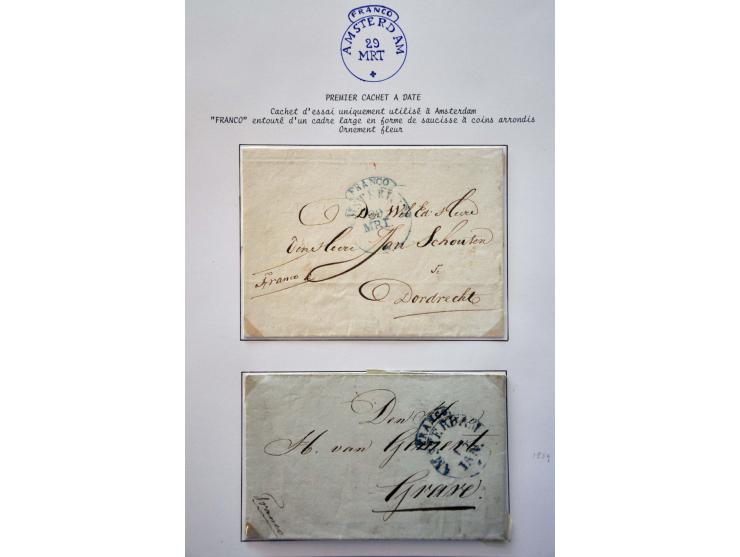 FRANCO
AMSTERDAM
29
MRT
PREMIER CACHET A DATE
Cachet d'essai uniquement utilisé à Amsterdam
"FRANCO" entouré d'un cadre large en forme de saucisse à coins arrondis
Ornement fleur
FRANCO
MRT
Den Wel Ed Heere
den Heere Jan Schouten
te
Franco
Dordrecht
Den Heer
FRANCO
AMSTERDAM
JAN
H. van Gemert
Grave.
Franco
1829